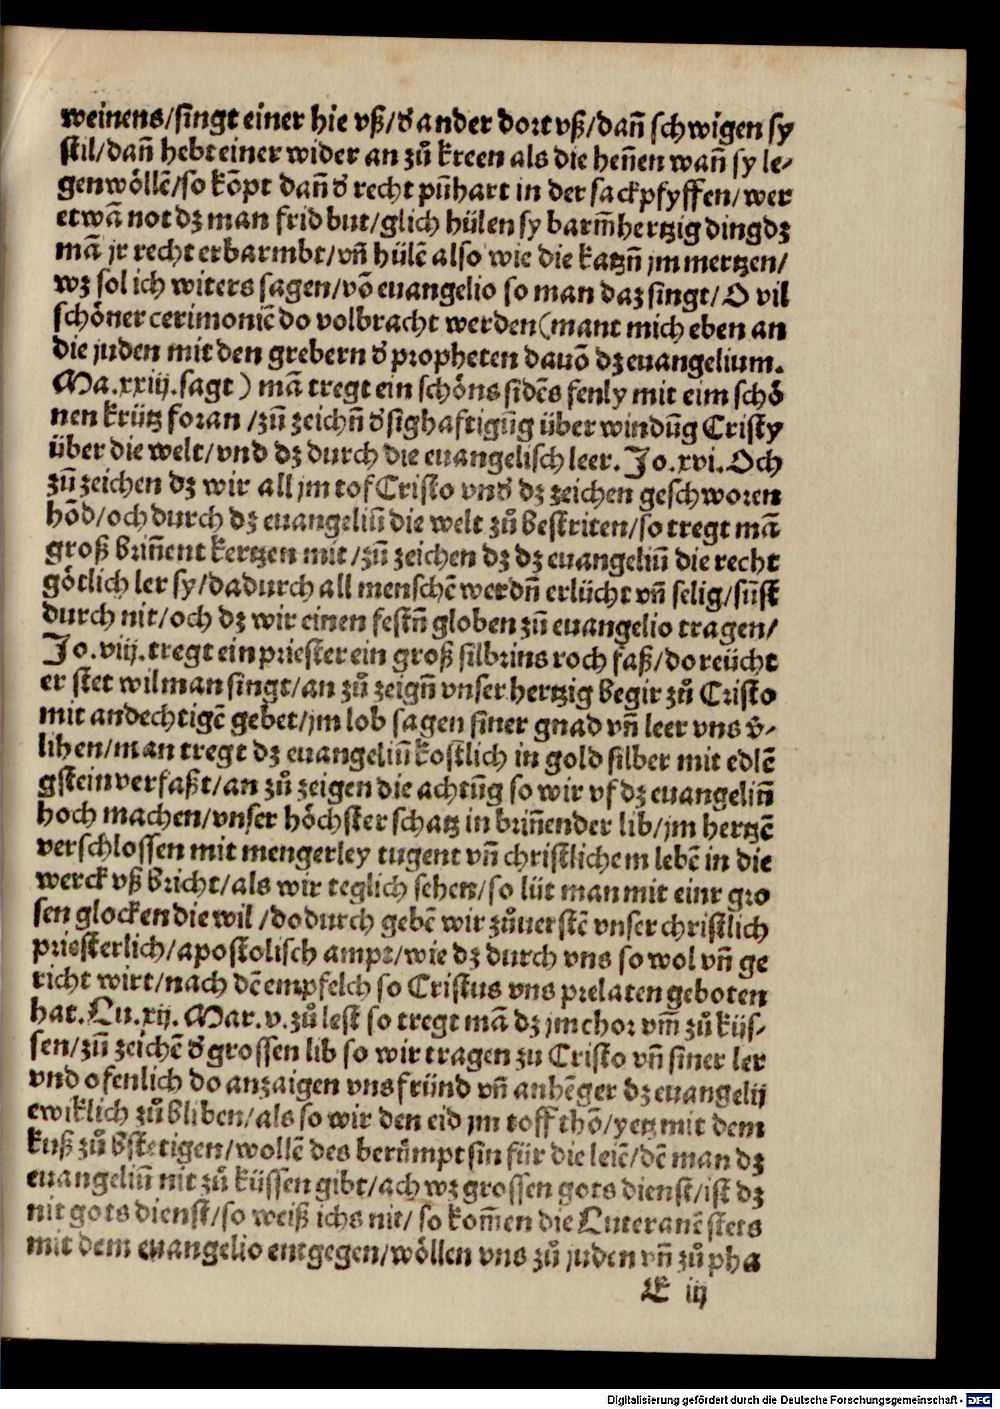 weinens/singt einer hie vß/dʼander dort vß/dañ schwigen sy
stil/dañ hebt einer wider an zů kreen als die heñen wañ sy le-
gen wöllē/so kōpt dañ dʼ recht pūhart in der sackpfyffen/wer
etwā not dz man frid but/glich hülen sy barm̄hertzig ding dz
mā jr recht erbarmbt/vñ hülē also wie die katzñ jm mertzen/
wz sol ich witers sagen/vō euangelio so man daz singt/O vil
schöner cerimoniē do volbracht werden(mant mich eben an
die juden mit den grebern dʼ propheten dauō dz euangelium.
Ma.xxiij.sagt) mā tregt ein schöns sidēs fenly mit eim schö
nen krütz foran/zū zeichñ dʼ sighaftigūg über windūg Cristy
über die welt/vnd dz durch die euangelisch leer. Jo.xvi. Och
zū zeichen dz wir all jm tof Cristo vndʼ dz zeichen geschworen
hōd/och durch dz euangeliū die welt zů bestriten/so tregt mā
groß briñent kertzen mit/zū zeichen dz dz euangeliū die recht
götlich ler sy/dadurch all menschē werdñ erlücht vñ selig/sūst
durch nit/och dz wir einen festñ globen zū euangelio tragen/
Jo.viij.tregt ein priester ein groß silbrins roch faß/do reücht
er stet wil man singt/an zů zeigñ vnser hertzig begir zů Cristo
mit andechtigē gebet/jm lob sagen siner gnad vñ leer vns v̄-
lihen/man tregt dz euangeliū kostlich in gold silber mit edlē
gstein verfaßt/an zů zeigen die achtūg so wir vf dz euangeliū
hoch machen/vnser höchster schatz in briñender lib/jm hertzē
verschlossen mit mengerley tugent vñ christlichem lebē in die
werck vß bricht/als wir teglich sehen/so lüt man mit einr gro
sen glocken die wil/do durch gebē wir zůuerstē vnser christlich
priesterlich/apostolisch ampt/wie dz durch vns so wol vñ ge
richt wirt/nach dē empfelch so Cristus vns prelaten geboten
hat. Lu.xij. Mar.v. zů lest so tregt mā dz jm chor vm̄ zů küs-
sen/zū zeichē dʼ grossen lib so wir tragen zu Cristo vñ siner ler
vnd ofenlich do anzaigen vns fründ vñ anhēger dz euangelij
ewiklich zů bliben/als so wir den eid jm toff thō/yetz mit dem
kuß zů bʼstetigen/wollē des berümpt sin für die leiē/dē man dz
euangeliū nit zů küssen gibt/ach wz grossen gots dienst/ist dz
nit gots dienst/so weiß ichs nit/so kom̄en die Luteranē stets
mit dem euangelio entgegen/wöllen vns zů juden vñ zů pha
E iij
Digitalisierung gefördert durch die Deutsche Forschungsgemeinschaft - DFG